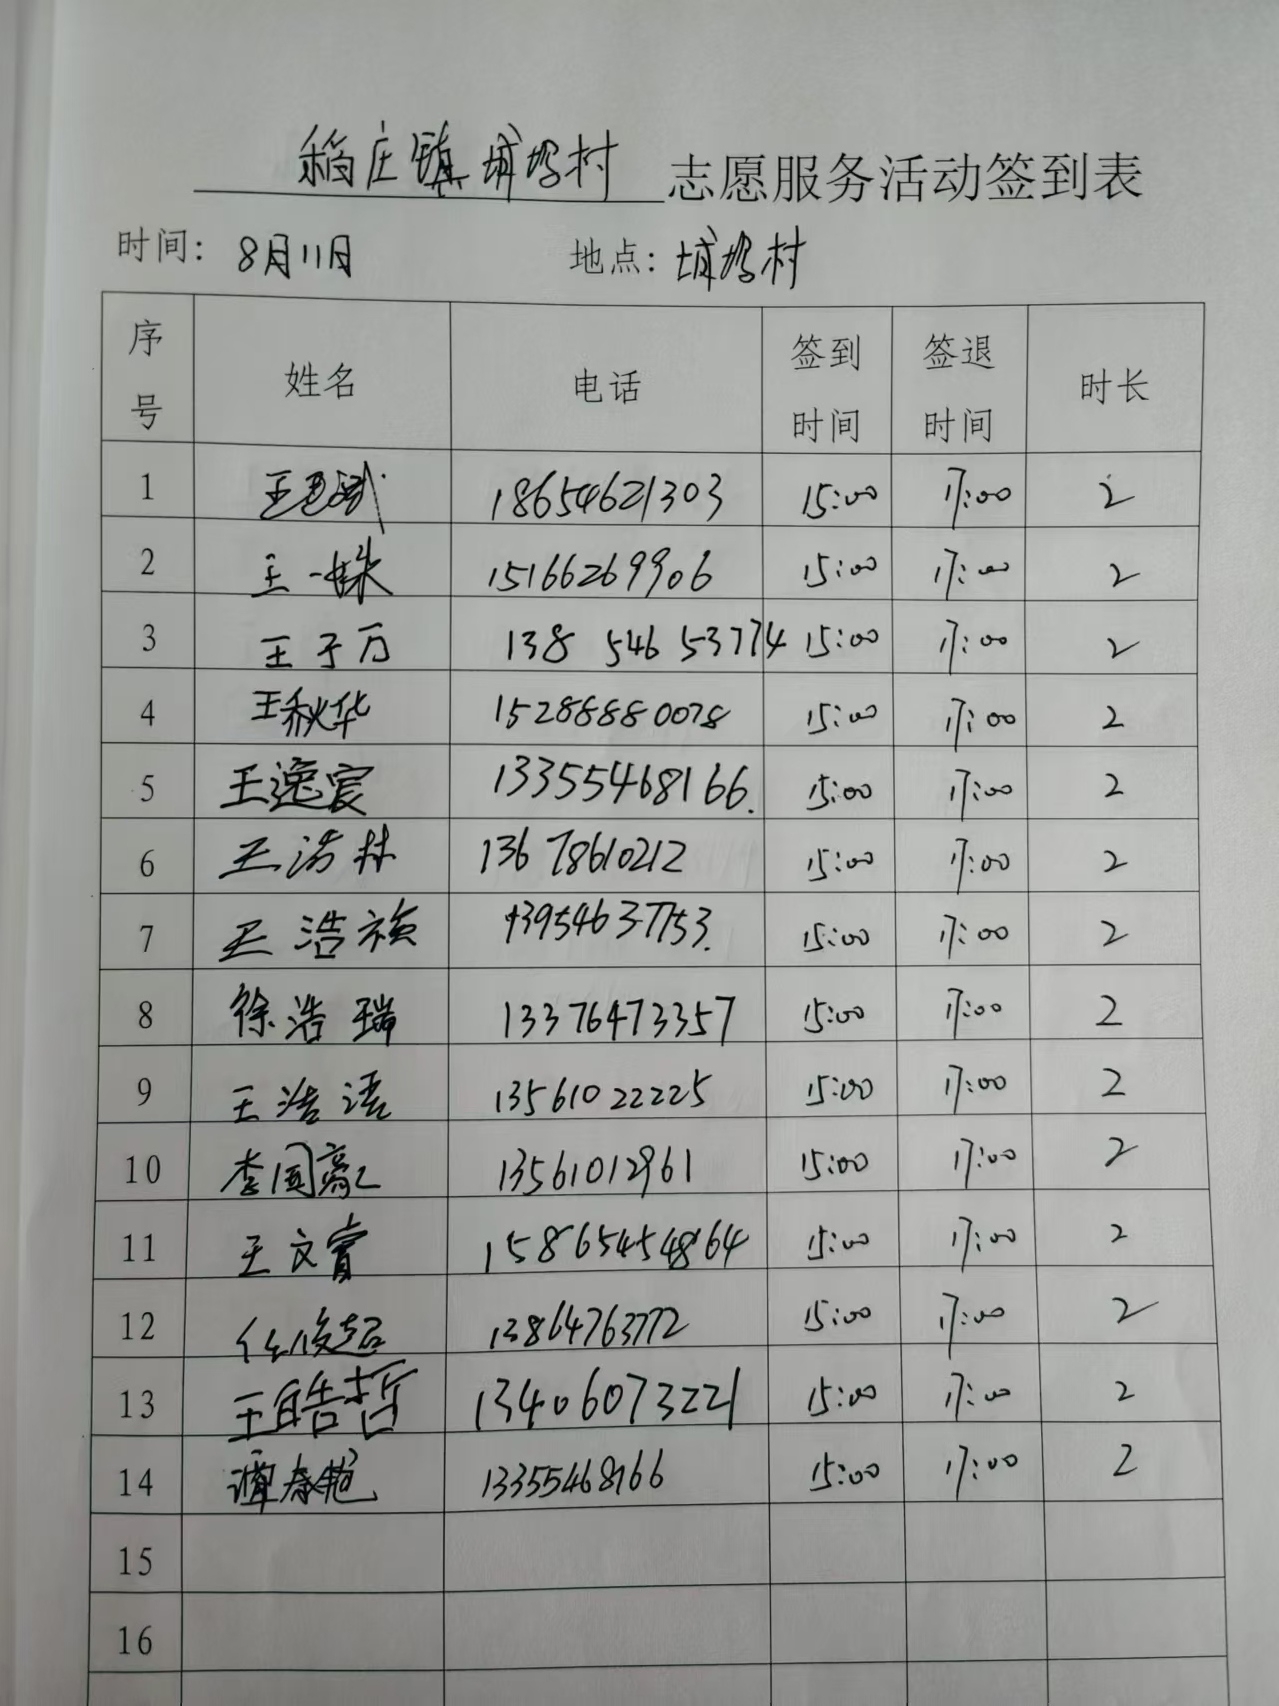 稻庄镇埔坞村 志愿服务活动签到表
时间：8月11日 地点：埔坞村
序号 姓名 电话 签到时间 签退时间 时长
1 王 18654621303 15:00 17:00 2
2 王一姝 15166269906 15:00 17:00 2
3 王子万 138 546 53774 15:00 17:00 2
4 王秋华 15288880078 15:00 17:00 2
5 王逸宸 13355468166. 15:00 17:00 2
6 王浩林 136 78610212 15:00 17:00 2
7 王浩祯 13954637753. 15:00 17:00 2
8 徐浩瑞 13376473357 15:00 17:00 2
9 王浩语 13561022225 15:00 17:00 2
10 李国豪 13561012961 15:00 17:00 2
11 王文睿 15865454864 15:00 17:00 2
12 任俊超 13864763772 15:00 17:00 2
13 王皓哲 13406073221 15:00 17:00 2
14 谭春艳 13355468166 15:00 17:00 2
15
16